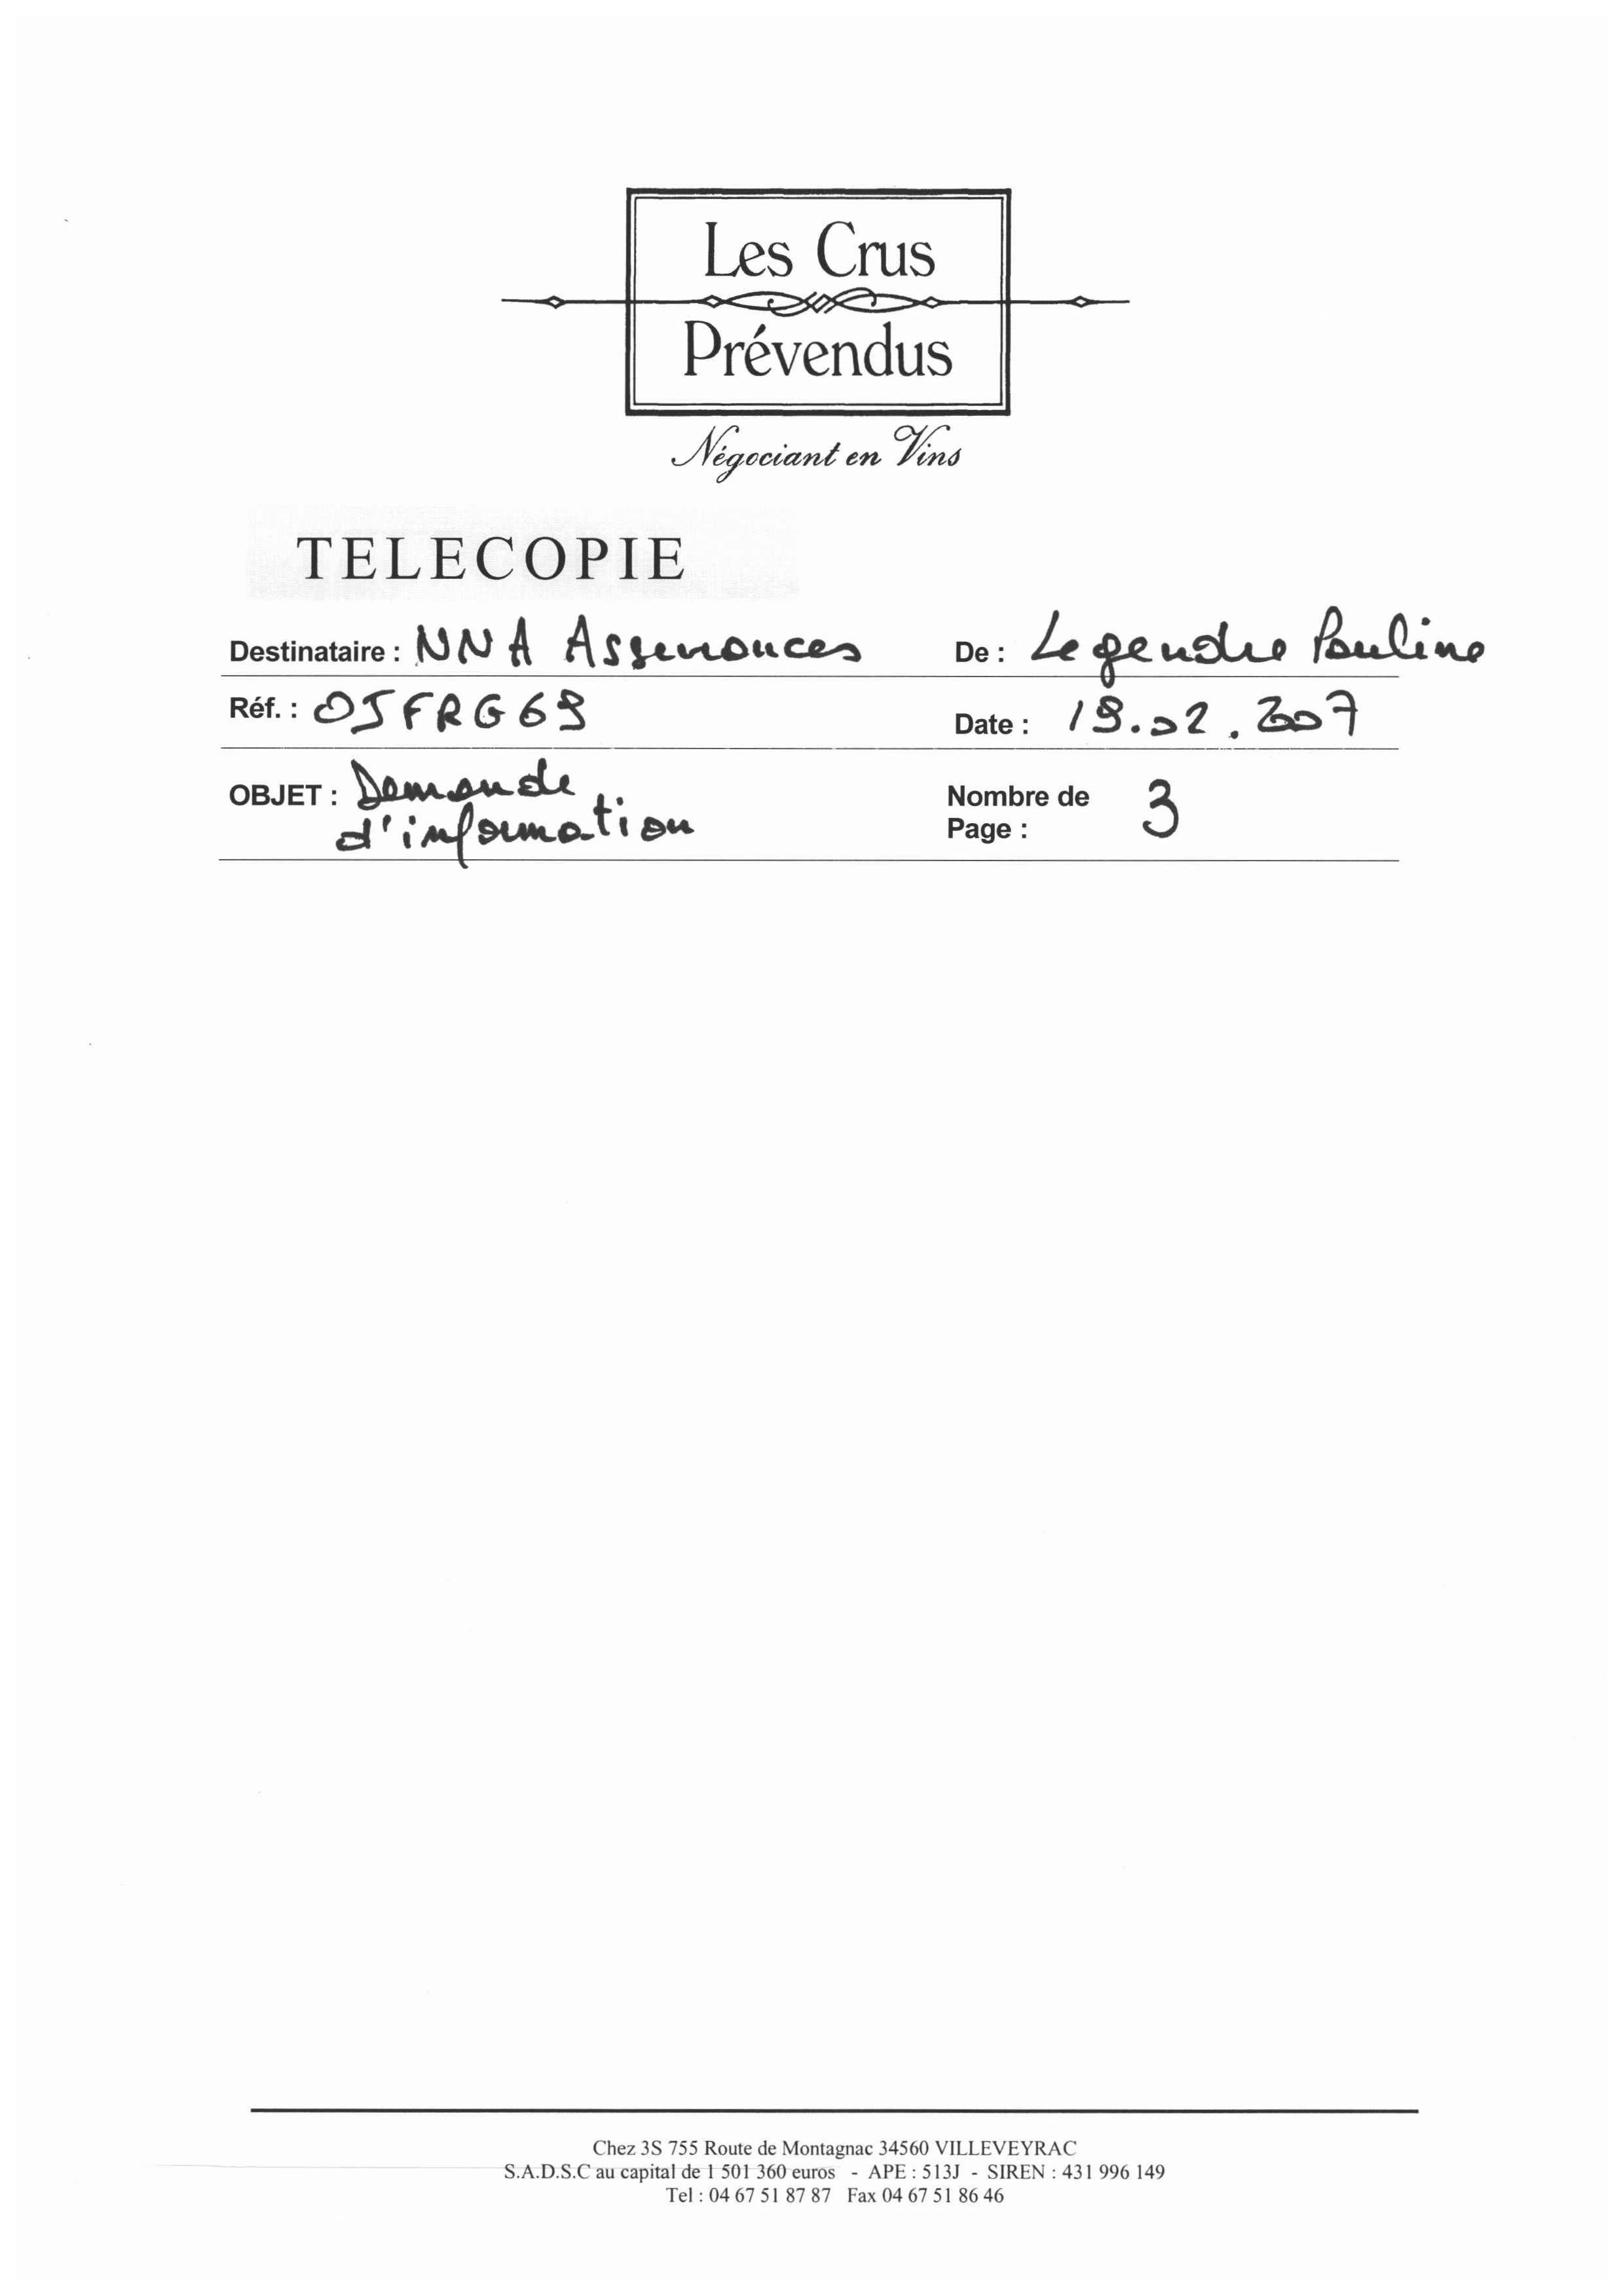 Les Crus
Prévendus
Négociant en Vins
TELECOPIE
Destinataire : NNA Assurances
De : Legendre Pauline
Réf. : OJFRG69
Date : 19.02.2007
OBJET : Demande
d'information
Nombre de
Page : 3
Chez 3S 755 Route de Montagnac 34560 VILLEVEYRAC
S.A.D.S.C au capital de 1 501 360 euros - APE : 513J - SIREN : 431 996 149
Tel : 04 67 51 87 87 Fax 04 67 51 86 46